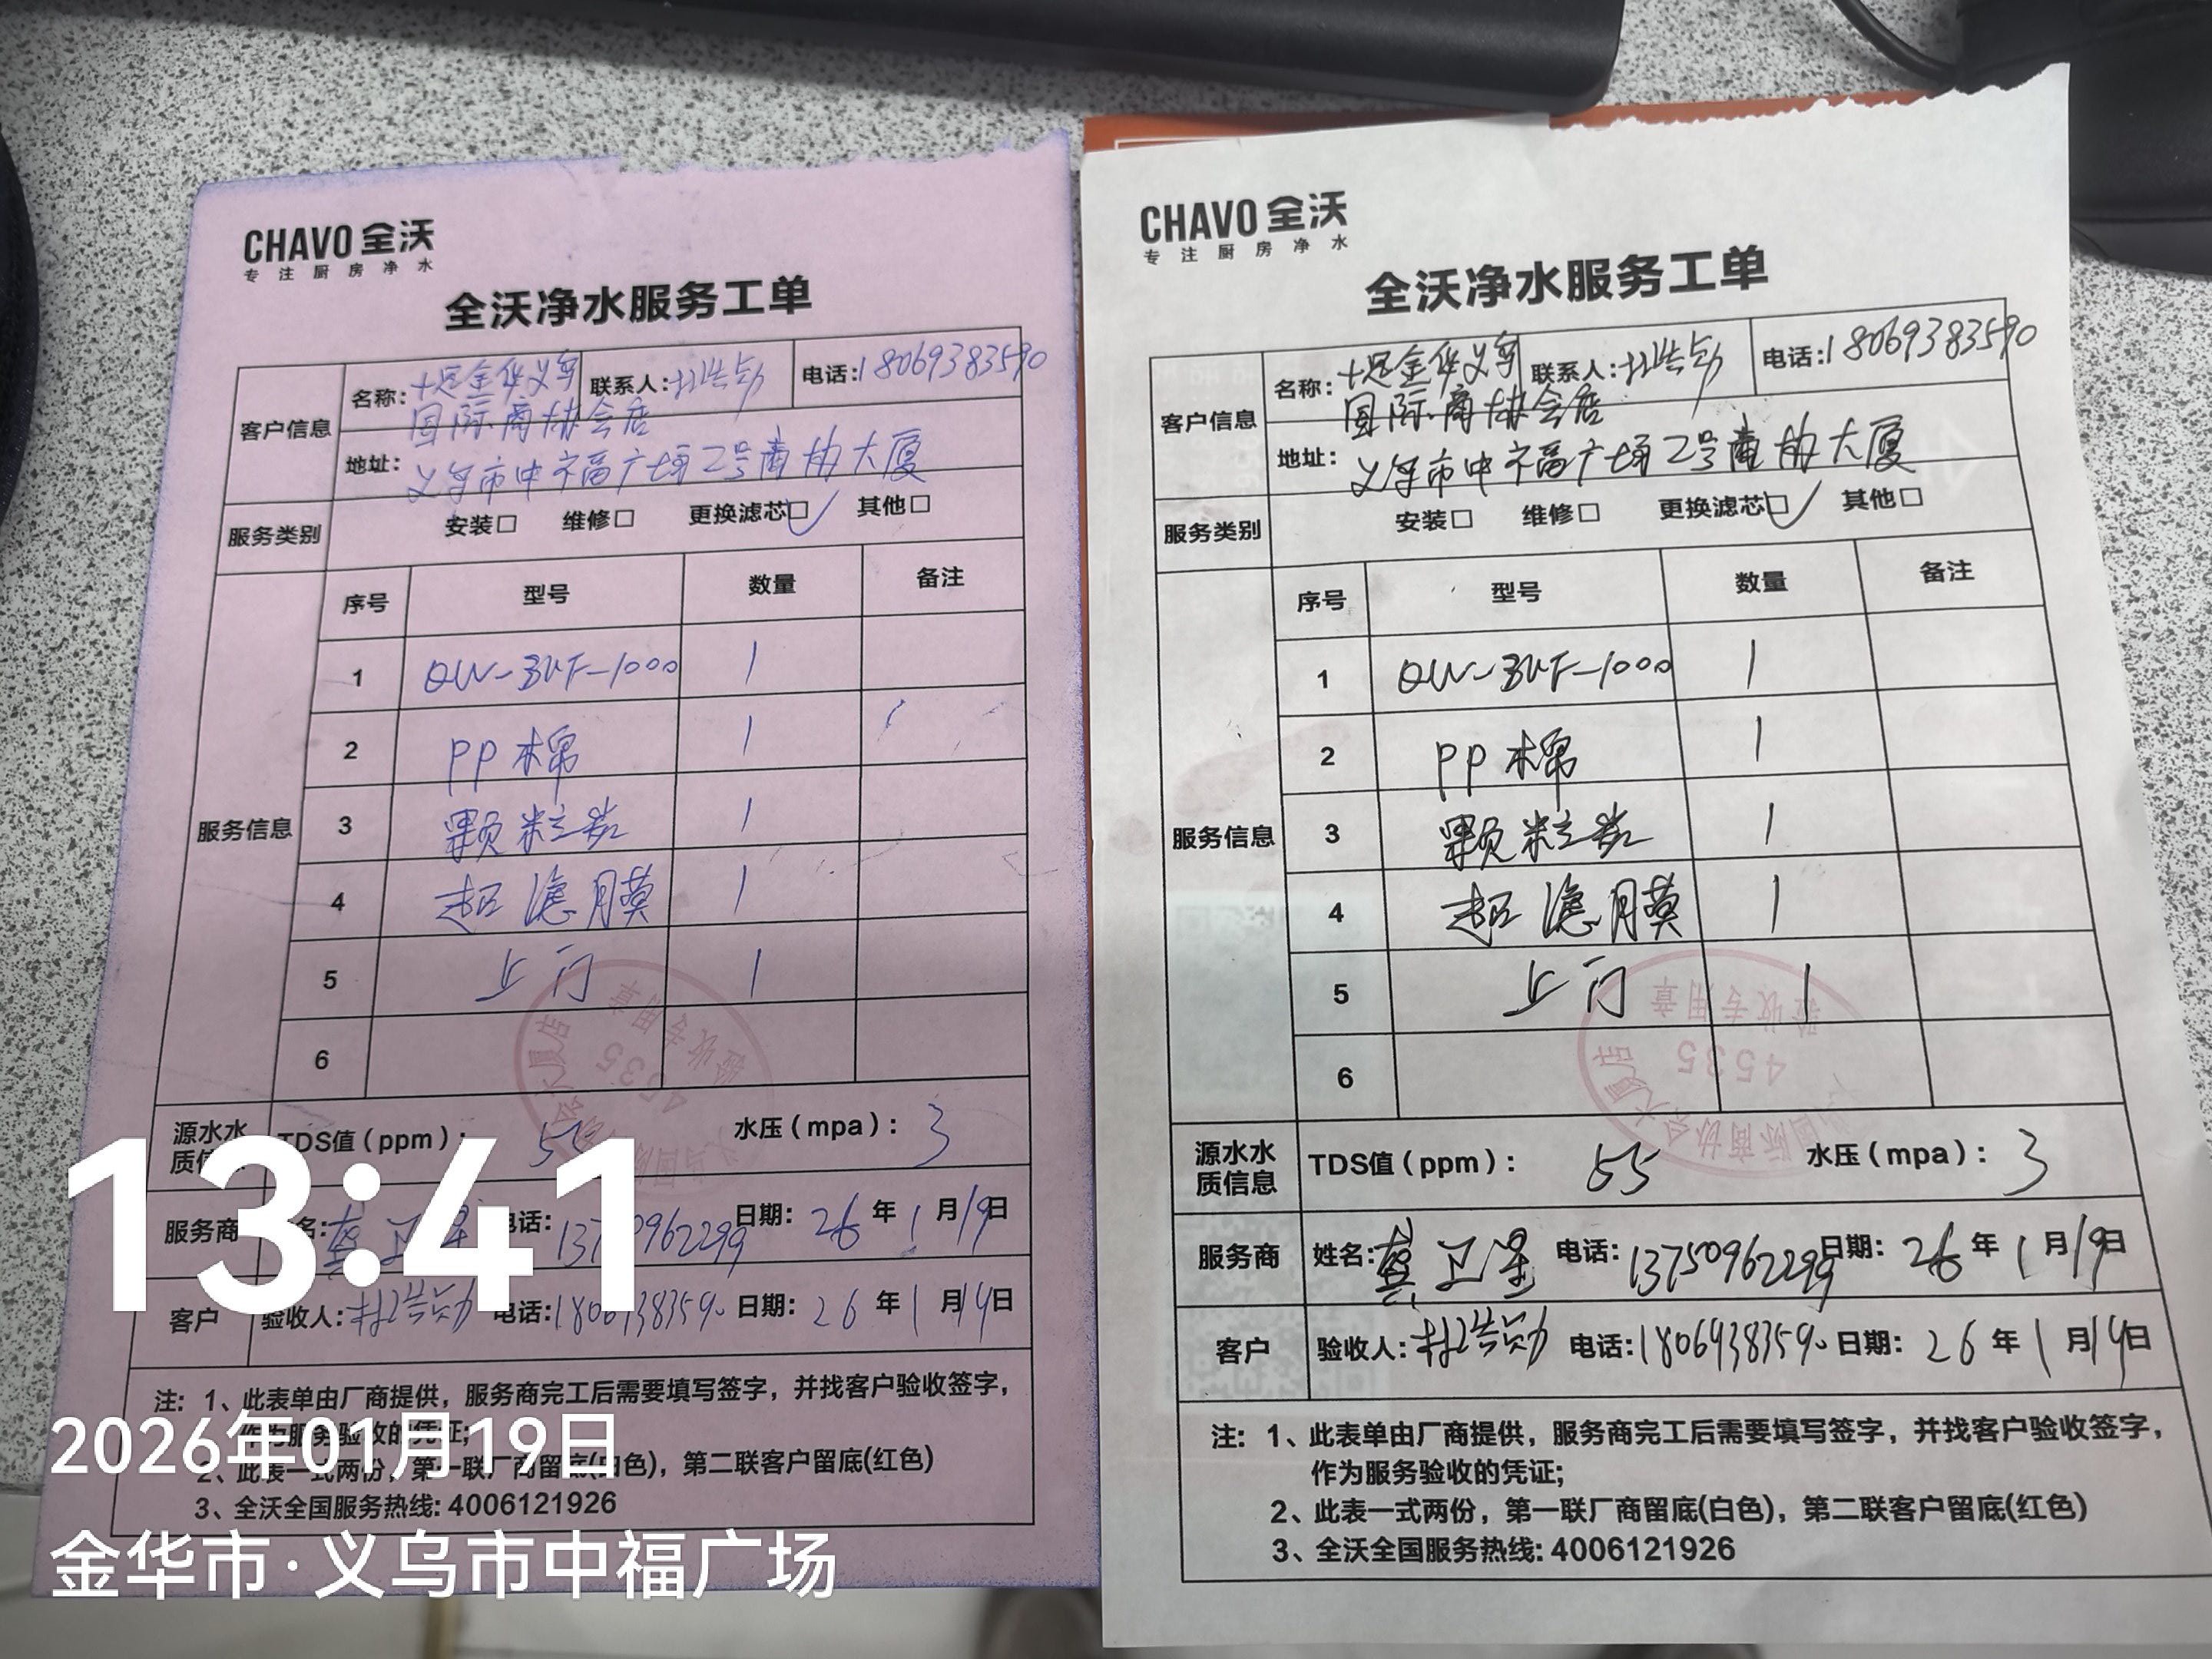 CHAVO 全沃
专注厨房净水
全沃净水服务工单
客户信息
名称: 十足金华义乌国际商协会店
联系人:
电话: 18069383590
地址: 义乌市中福广场2号商协大厦
服务类别
安装□ 维修□ 更换滤芯□✓ 其他□
服务信息
序号 型号 数量 备注
1 QW-BUF-1000 1
2 PP棉 1
3 颗粒炭 1
4 超滤膜 1
5 上门 1
6
源水水质信息
TDS值(ppm): 水压(mpa): 3
服务商
电话: 日期: 26年1月19日
客户
验收人: 电话: 日期: 26年1月19日
注: 1、此表单由厂商提供，服务商完工后需要填写签字，并找客户验收签字，
作为服务验收的凭证;
2、此表一式两份，第一联厂商留底(白色)，第二联客户留底(红色)
3、全沃全国服务热线: 4006121926
13:41
2026年01月19日
金华市·义乌市中福广场
CHAVO 全沃
专注厨房净水
全沃净水服务工单
客户信息
名称: 十足金华义乌国际商协会店
联系人:
电话: 18069383590
地址: 义乌市中福广场2号商协大厦
服务类别
安装□ 维修□ 更换滤芯□✓ 其他□
服务信息
序号 型号 数量 备注
1 QW-BUF-1000 1
2 PP棉 1
3 颗粒炭 1
4 超滤膜 1
5 上门 1
6
国际商协会大厦店
4535
验收专用章
源水水质信息
TDS值(ppm): 55 水压(mpa): 3
服务商
姓名: 龚卫星 电话: 13750962299 日期: 26年1月19日
客户
验收人: 电话: 18069383590 日期: 26年1月19日
注: 1、此表单由厂商提供，服务商完工后需要填写签字，并找客户验收签字，
作为服务验收的凭证;
2、此表一式两份，第一联厂商留底(白色)，第二联客户留底(红色)
3、全沃全国服务热线: 4006121926